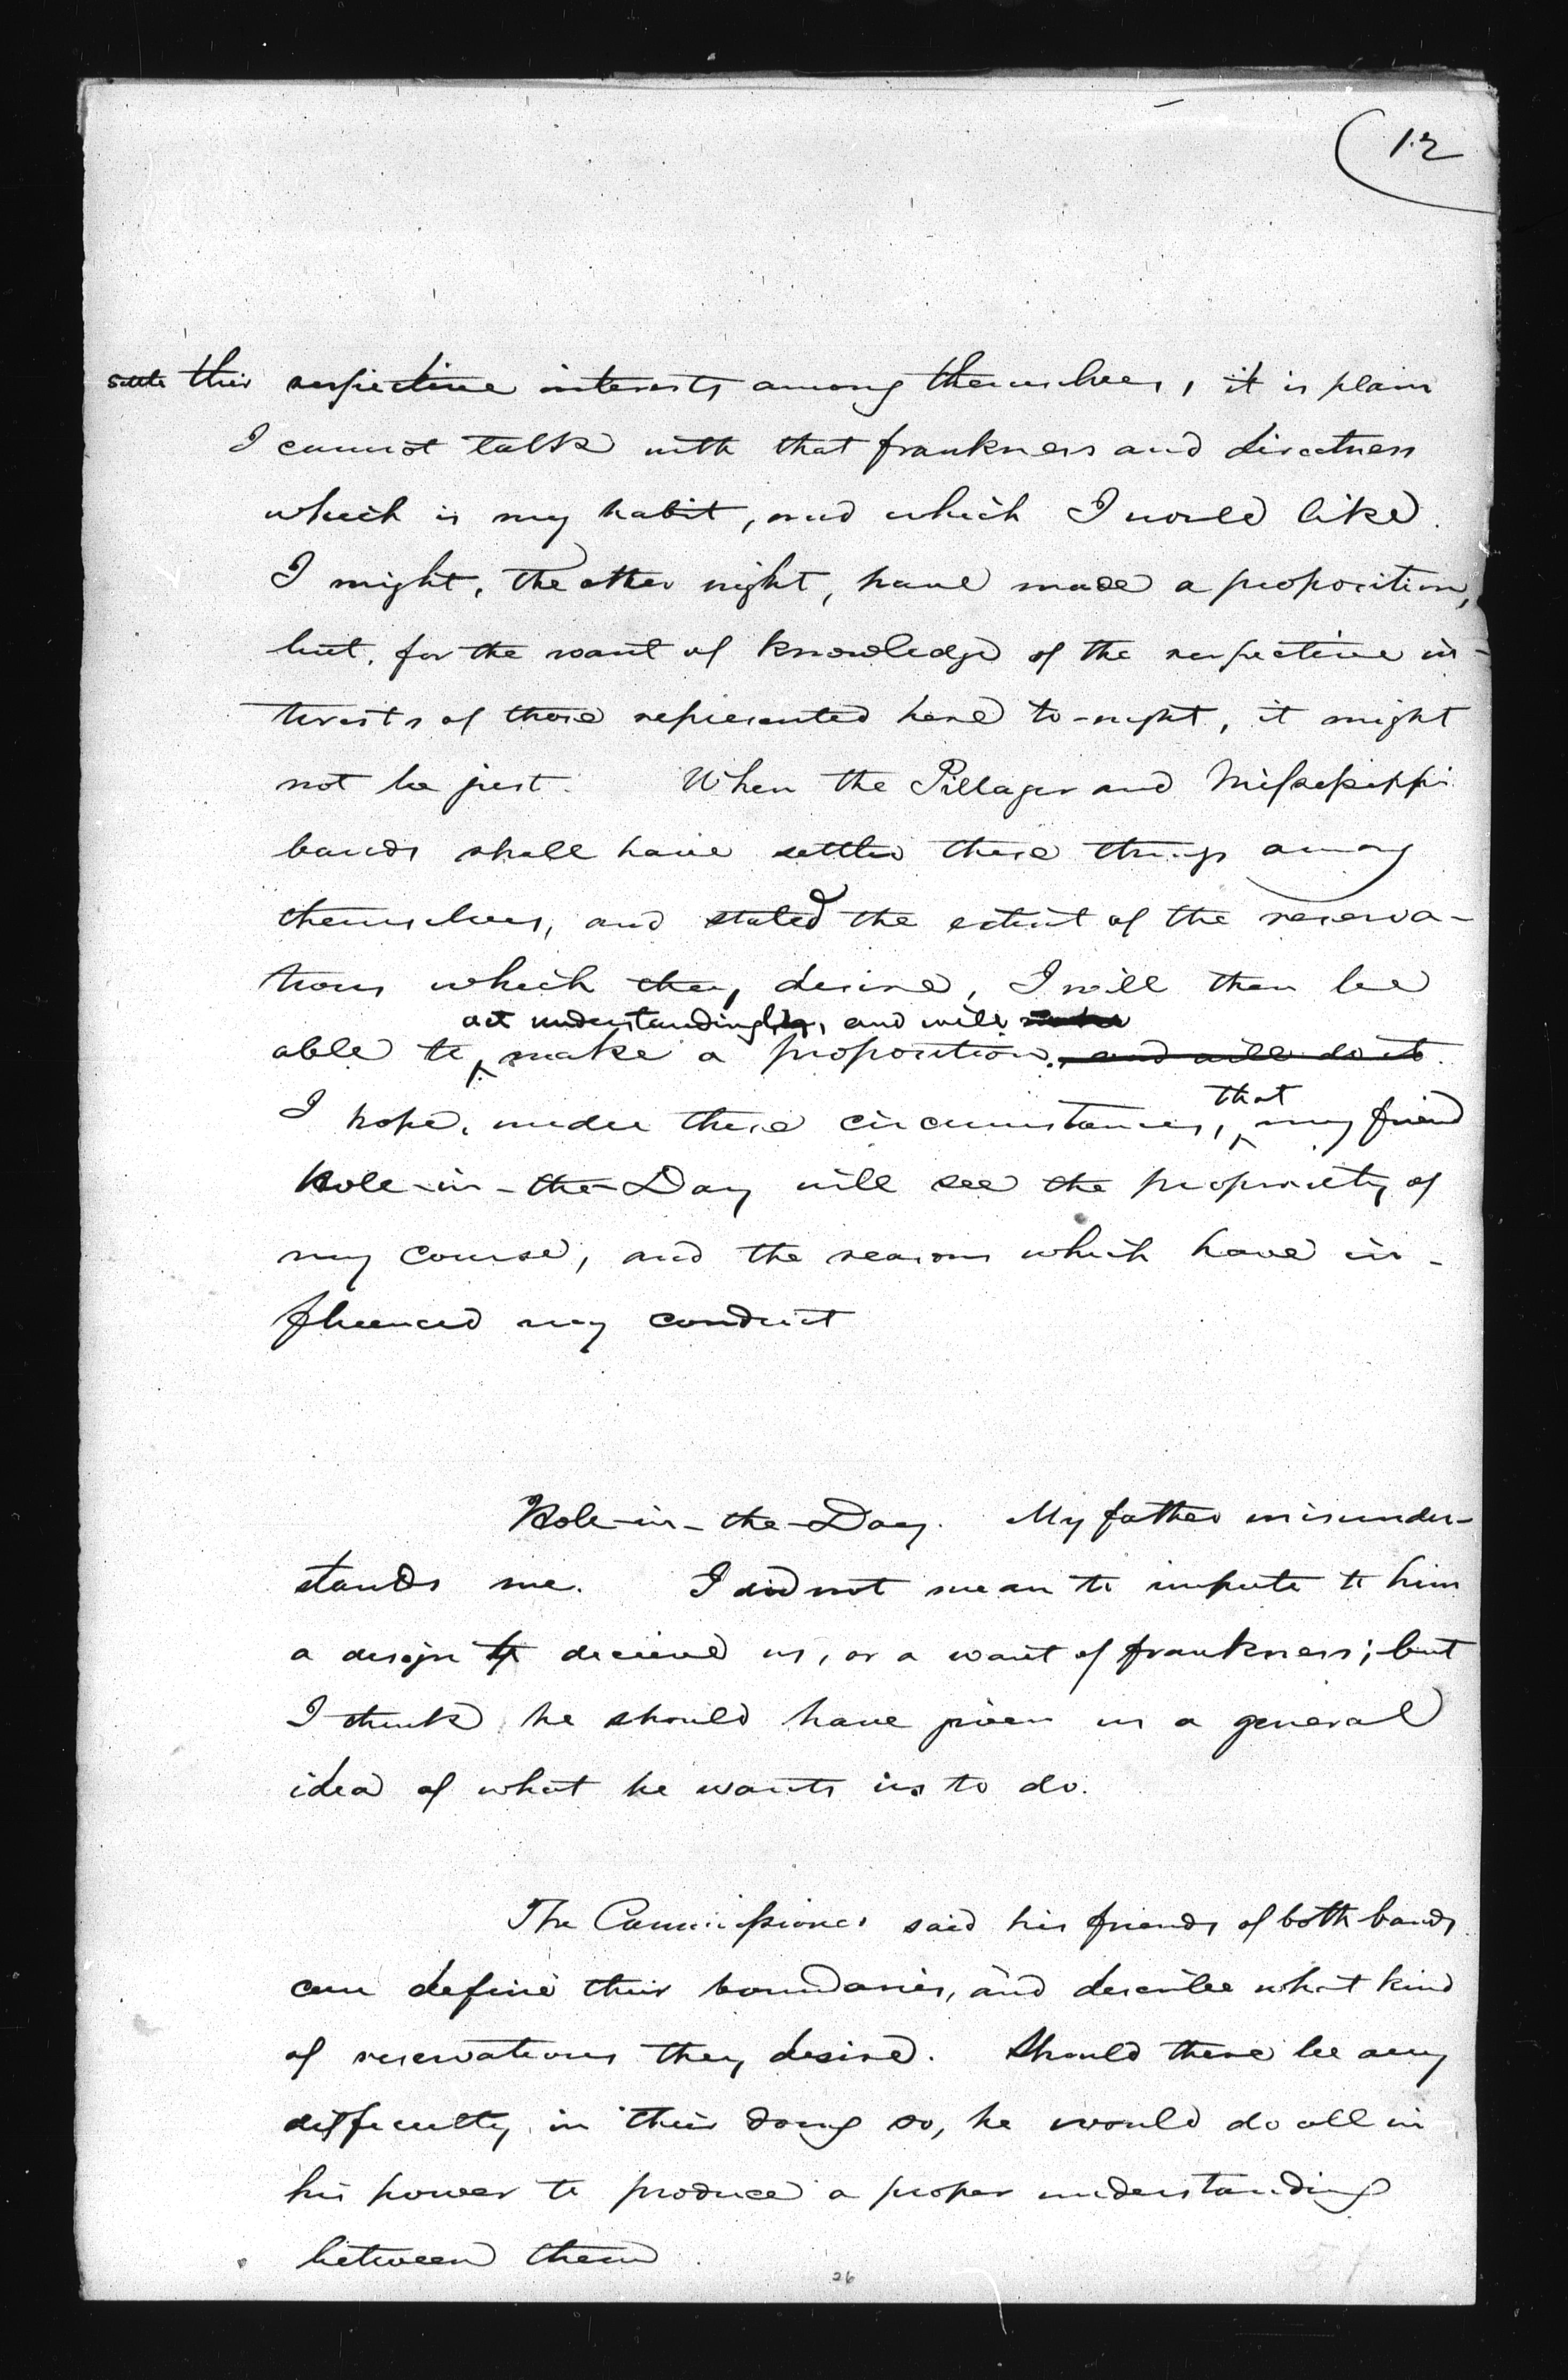 (12
settle their respective interests among themselves, it is plain
I cannot talk with that frankness and directness
which is my habit, and which I would like.
I might, the other night, have made a proposition,
but, for the want of knowledge of the respective in-
terests of those represented here to-night, it might
not be just. When the Pillager and Mississippi
bands shall have settled these things among
themselves, and stated the extent of the reserva-
tions which they desire, I will then be
act understandingly, and will
able to make a proposition, and will do it.
that
I hope, under these circumstances, my friend
Hole-in-the-Day will see the propriety of
my course, and the reasons which have in-
fluenced my conduct
Hole-in-the-Day. My father misunder-
stands me. I did not mean to impute to him
a design to deceive us, or a want of frankness; but
I think he should have given us a general
idea of what he wants us to do.
The Commissioner said his friends of both bands
can define their boundaries, and describe what kind
of reservations they desire. Should there be any
difficulty in their doing so, he would do all in
his power to produce a proper understanding
between them.
26